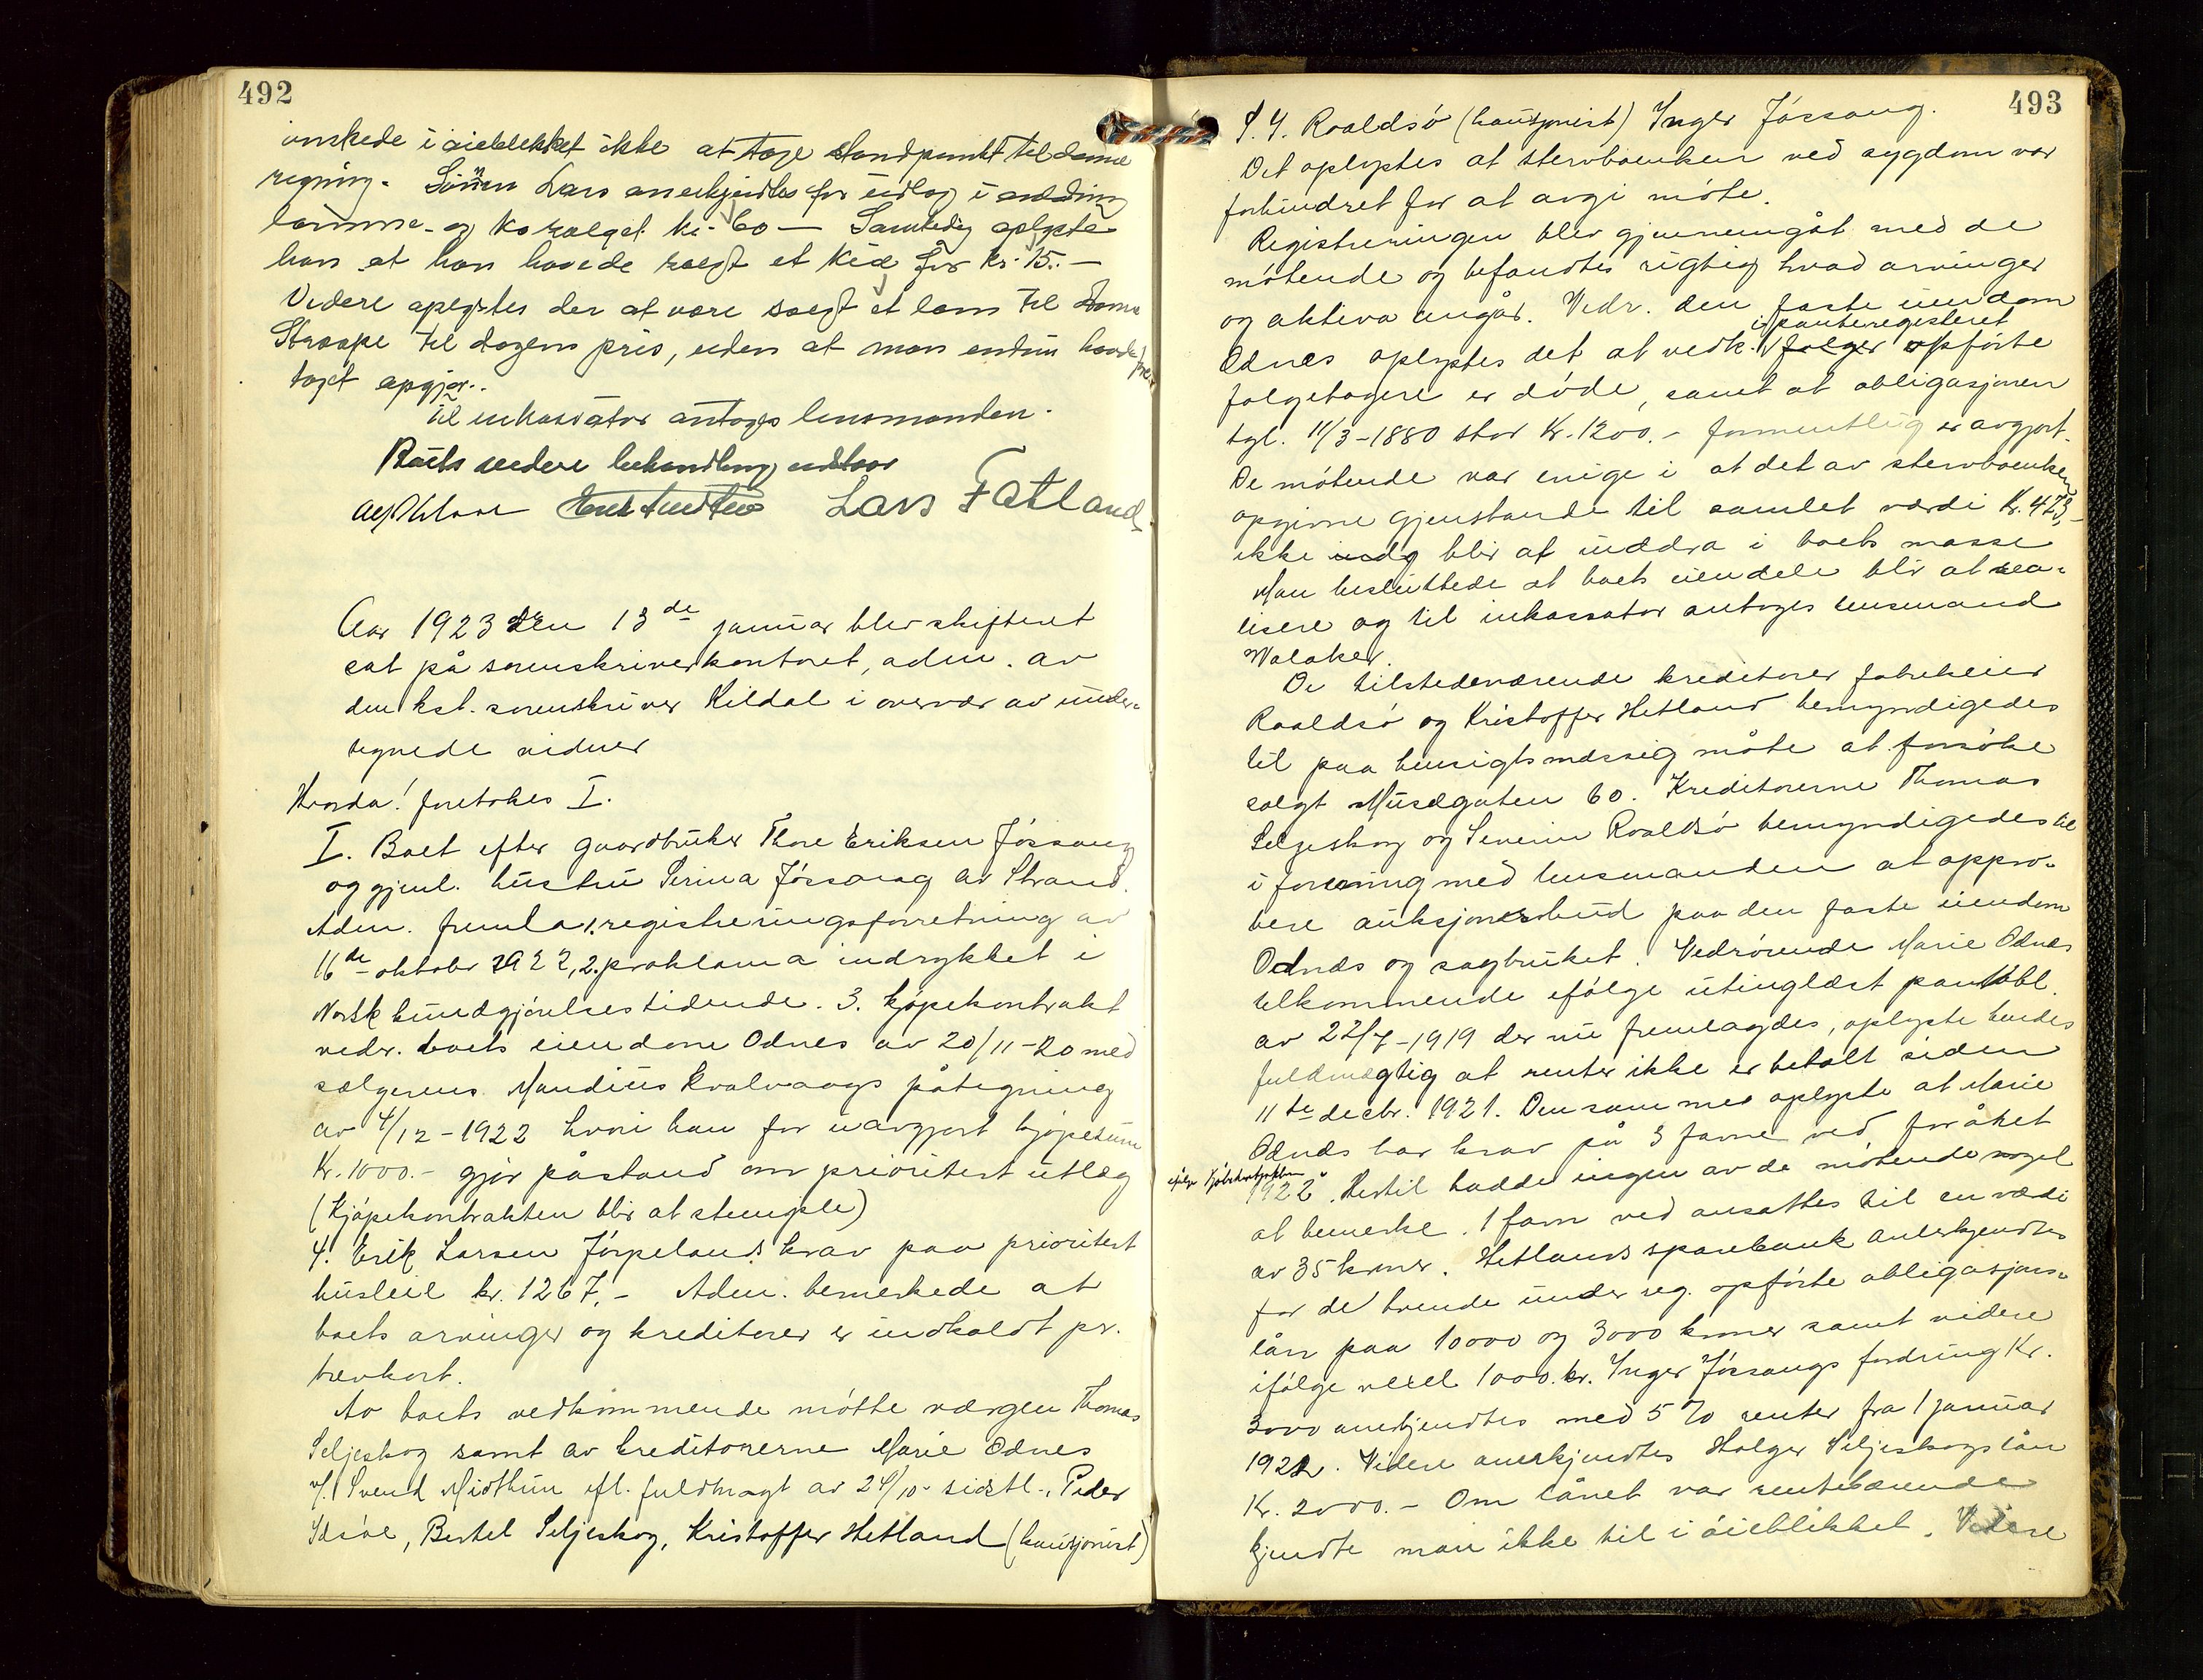 492
ønskede i øieblekket ikke at tage standpunkt til denne
regning. Sønnen Lars anerkjendtes for utlæg i anledning
lømme- og ko kr. 60 — Samtidig oplyste
han at han havde solgt et kid for kr. 15.—
Videre oplystes der at være solgt et lam til
til dagens pris, uden at man endnu havde
taget opgjør..
Til inkassator antoges lensmanden.
Boets videre behandling utstaar
Lars Fatland
Aar 1923 den 13de januar blev skifteret
sat på sorenskriverkontoret, adm. av
den kst. sorenskriver Kildal i overvær av under-
tegnede vidner
Hvorda! foretokes I.
I. Boet efter gaardbruker Thore Eriksen Jössang
og gjenl. hustru Serina Jössang av Strand.
Adm. fremla 1. registreringsforretning av
16de oktober 1922, 2. proklama indrykket i
Norsk kundgjörelsestidende. 3. kjöpekontrakt
vedr. boets eiendom Odnes av 20/11-20 med
sælgerens Mandius Kvalvaags påtegning
av 4/12-1922 hvori han for uavgjort kjöpesum
Kr. 1000.- gjör påstand om prioritert utlæg
(Kjöpekontrakten blir at stemple)
4. Erik Larsen Jörpelands krav paa prioritert
husleie kr. 1267,- Adm. bemerkede at
boets arvinger og kreditorer er indkaldt pr.
brevkort.
Av boets vedkommende mötte værgen Thomas
Seljeskog samt av kreditorerne Marie Odnes
v/ Svend Miothun efl. fuldmagt av 24/10 sidstl., Peder
Idsöe, Bertel Seljeskog, Kristoffer Hetland (kausjonist)
493
Roaldsö (kausjonist) Inger Jössang.
Det oplystes at stervboenken ved sygdom var
forhindret for at avgi möte.
Registreringen blev gjennemgåt med de
mötende og befandtes rigtig hvad arvinger
og aktiva angår. Vedr. den faste eiendom
i panteregisteret
Odnes oplystes det at vedk. folger opförte
folgetagere er döde, samt at obligasjonen
tgl. 11/3-1880 stor Kr. 1200.- formentlig er avgjort.
De mötende var enige i at det av stervboenken
opgivne gjenstande til samlet værdi Kr. 473,-
ikke indg blir at inddra i boets masse
Man besluttede at boets eiendele blir at rea-
lisere og til inkassator antoges lensmand
Walaker.
De tilstedeværende kreditorer fabrikeier
Roaldsö og Kristoffer Hetland bemyndigedes
til paa hensigtsmæssig måte at forsöke
solgt Musegaten 60. Kreditorerne Thomas
Seljeskog og Severin Roaldsö bemyndigedes til
i forening med lensmanden at appro-
bere auksjonsbud paa den faste eiendom
Odnæs og sagbruket. Vedrörende Marie Odnæs
tilkommende ifölge utinglæst pantobl.
av 22/7-1919 der nu fremlagdes, oplyste hendes
fuldmægtig at renter ikke er betalt siden
11te decbr. 1921. Den samme oplyste at Marie
Odnæs har krav på 3 favne ved for året
ifölge kjöpekontrakten
1922. Hertil hadde ingen av de mötende noget
at bemerke. 1 favn ved ansattes til en værdi
av 35 kroner. Hetlands sparebank anerkjendtes
for de tvende under reg. opförte obligasjons-
lån paa 10000 og 3000 kroner samt videre
ifölge vexel 1000.kr. Inger Jössangs fordring Kr.
3000 anerkjendtes med 5 % renter fra 1 januar
1922. Videre anerkjendtes Holger Seljeskogs lån
Kr. 2000.- Om lånet var rentebærende
kjendte man ikke til i öieblikket. Videre